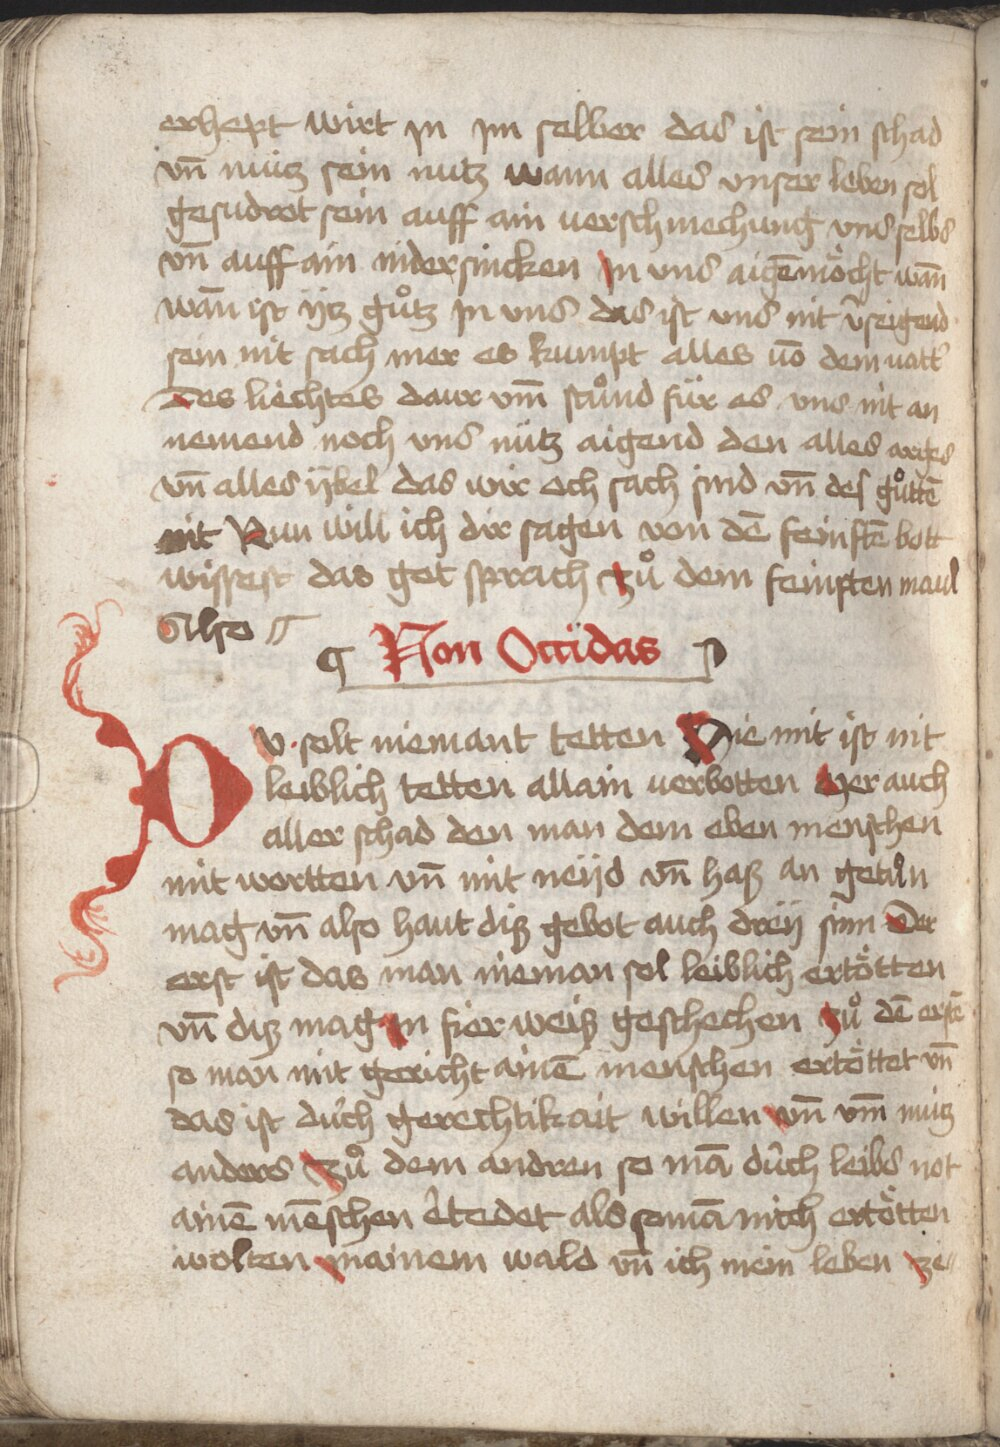 erhept wirt jn jm selber das ist sein schad
vn̄ nütz sein nutz wann alles vnser leben sol
gesudrot sein auff ain verschmechung vnd selbs
vn̄ auff ain nidersincken jn vns aigē möcht wan̄
wan̄ ist ijtz gůtz jn vns das ist vns nit
sein nit sach mer es kumpt alles vō dem vatt'
Des liechtes daur vm̄ stůnd für es vns nit an
nemend noch vns nütz aigend den alles arges
vn̄ alles ÿbel das wir och sach sind vn̄ des gůttē
nit Nun will ich dir sagen von dē feinftē bott
wissest das got sprach zů dem feinften maul
Also
¶ Non Occidas
DV solt niemant tetten Hie mit ist nit
leiblich tetten allain verbotten Mer auch
aller schad den man dem eben menschen
mit wortten vn̄ mit neÿd vn̄ haß an getůn
mag vn̄ also haut diß gebot auch dreÿ sinn Der
erst ist das man nieman sol leiblich ertötten
vn̄ diß mag jn fier weiß geschechen zů dē erstē
so man mit gericht ainē menschen ertöttet vn̄
das ist durch gerechtikait willen vn̄ vm̄ nütz
anders zů dem andren so mā durch leibs not
ainē mēschen ertedet als so mā mich ertötten
wolten jn ainem wald vn̄ ich mein leben ze